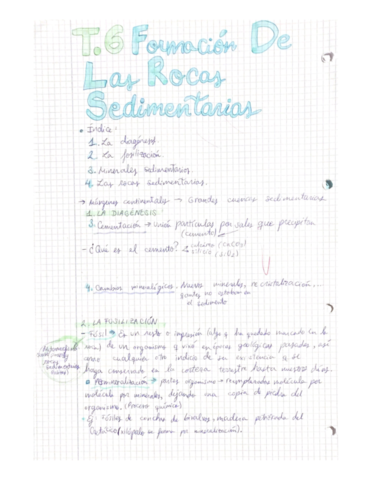 T.6 Formación De
Las Rocas
Sedimentarias
• Índice:
1. La diagénesis.
2. La fosilización.
3. Minerales sedimentarios.
4. Las rocas sedimentarias.
→ Márgenes continentales → Grandes cuencas sedimentarias
1. LA DIAGÉNESIS
3. Cementación → unión partículas por sales que precipitan
(cemento)
- ¿Qué es el cemento? calcita (CaCO3)
sílice (SiO2)
4. Cambios mineralógicos. Nuevos minerales, recristalización...
antes no estaban en
el sedimento
2. LA FOSILIZACIÓN
- Fósil → Es un resto o impresión (algo q ha quedado marcado en la
roca) de un organismo q vivió en épocas geológicas pasadas, así
como cualquier otro indicio de su existencia y se
haya conservado en la corteza terrestre hasta nuestros días.
rocas
sedimentarias
• Permineralización → partes organismo → reemplazadas molécula por
molécula por minerales, dejando una copia de piedra del
organismo. (Proceso químico)
- Ej: Fósiles de conchas de bivalvos, madera